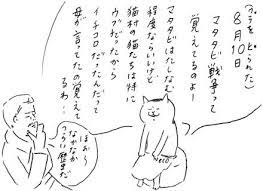 8月10日
マタタビ戦争って
覚えてるのよー
マタタビはたしなむ
程度ならいいけど
猫村の猫たちは特に
ウブだったから
イチコロだったんだって
母が言ってたの覚えて
るわー
ほおー
なかなか
つらい歴史だ